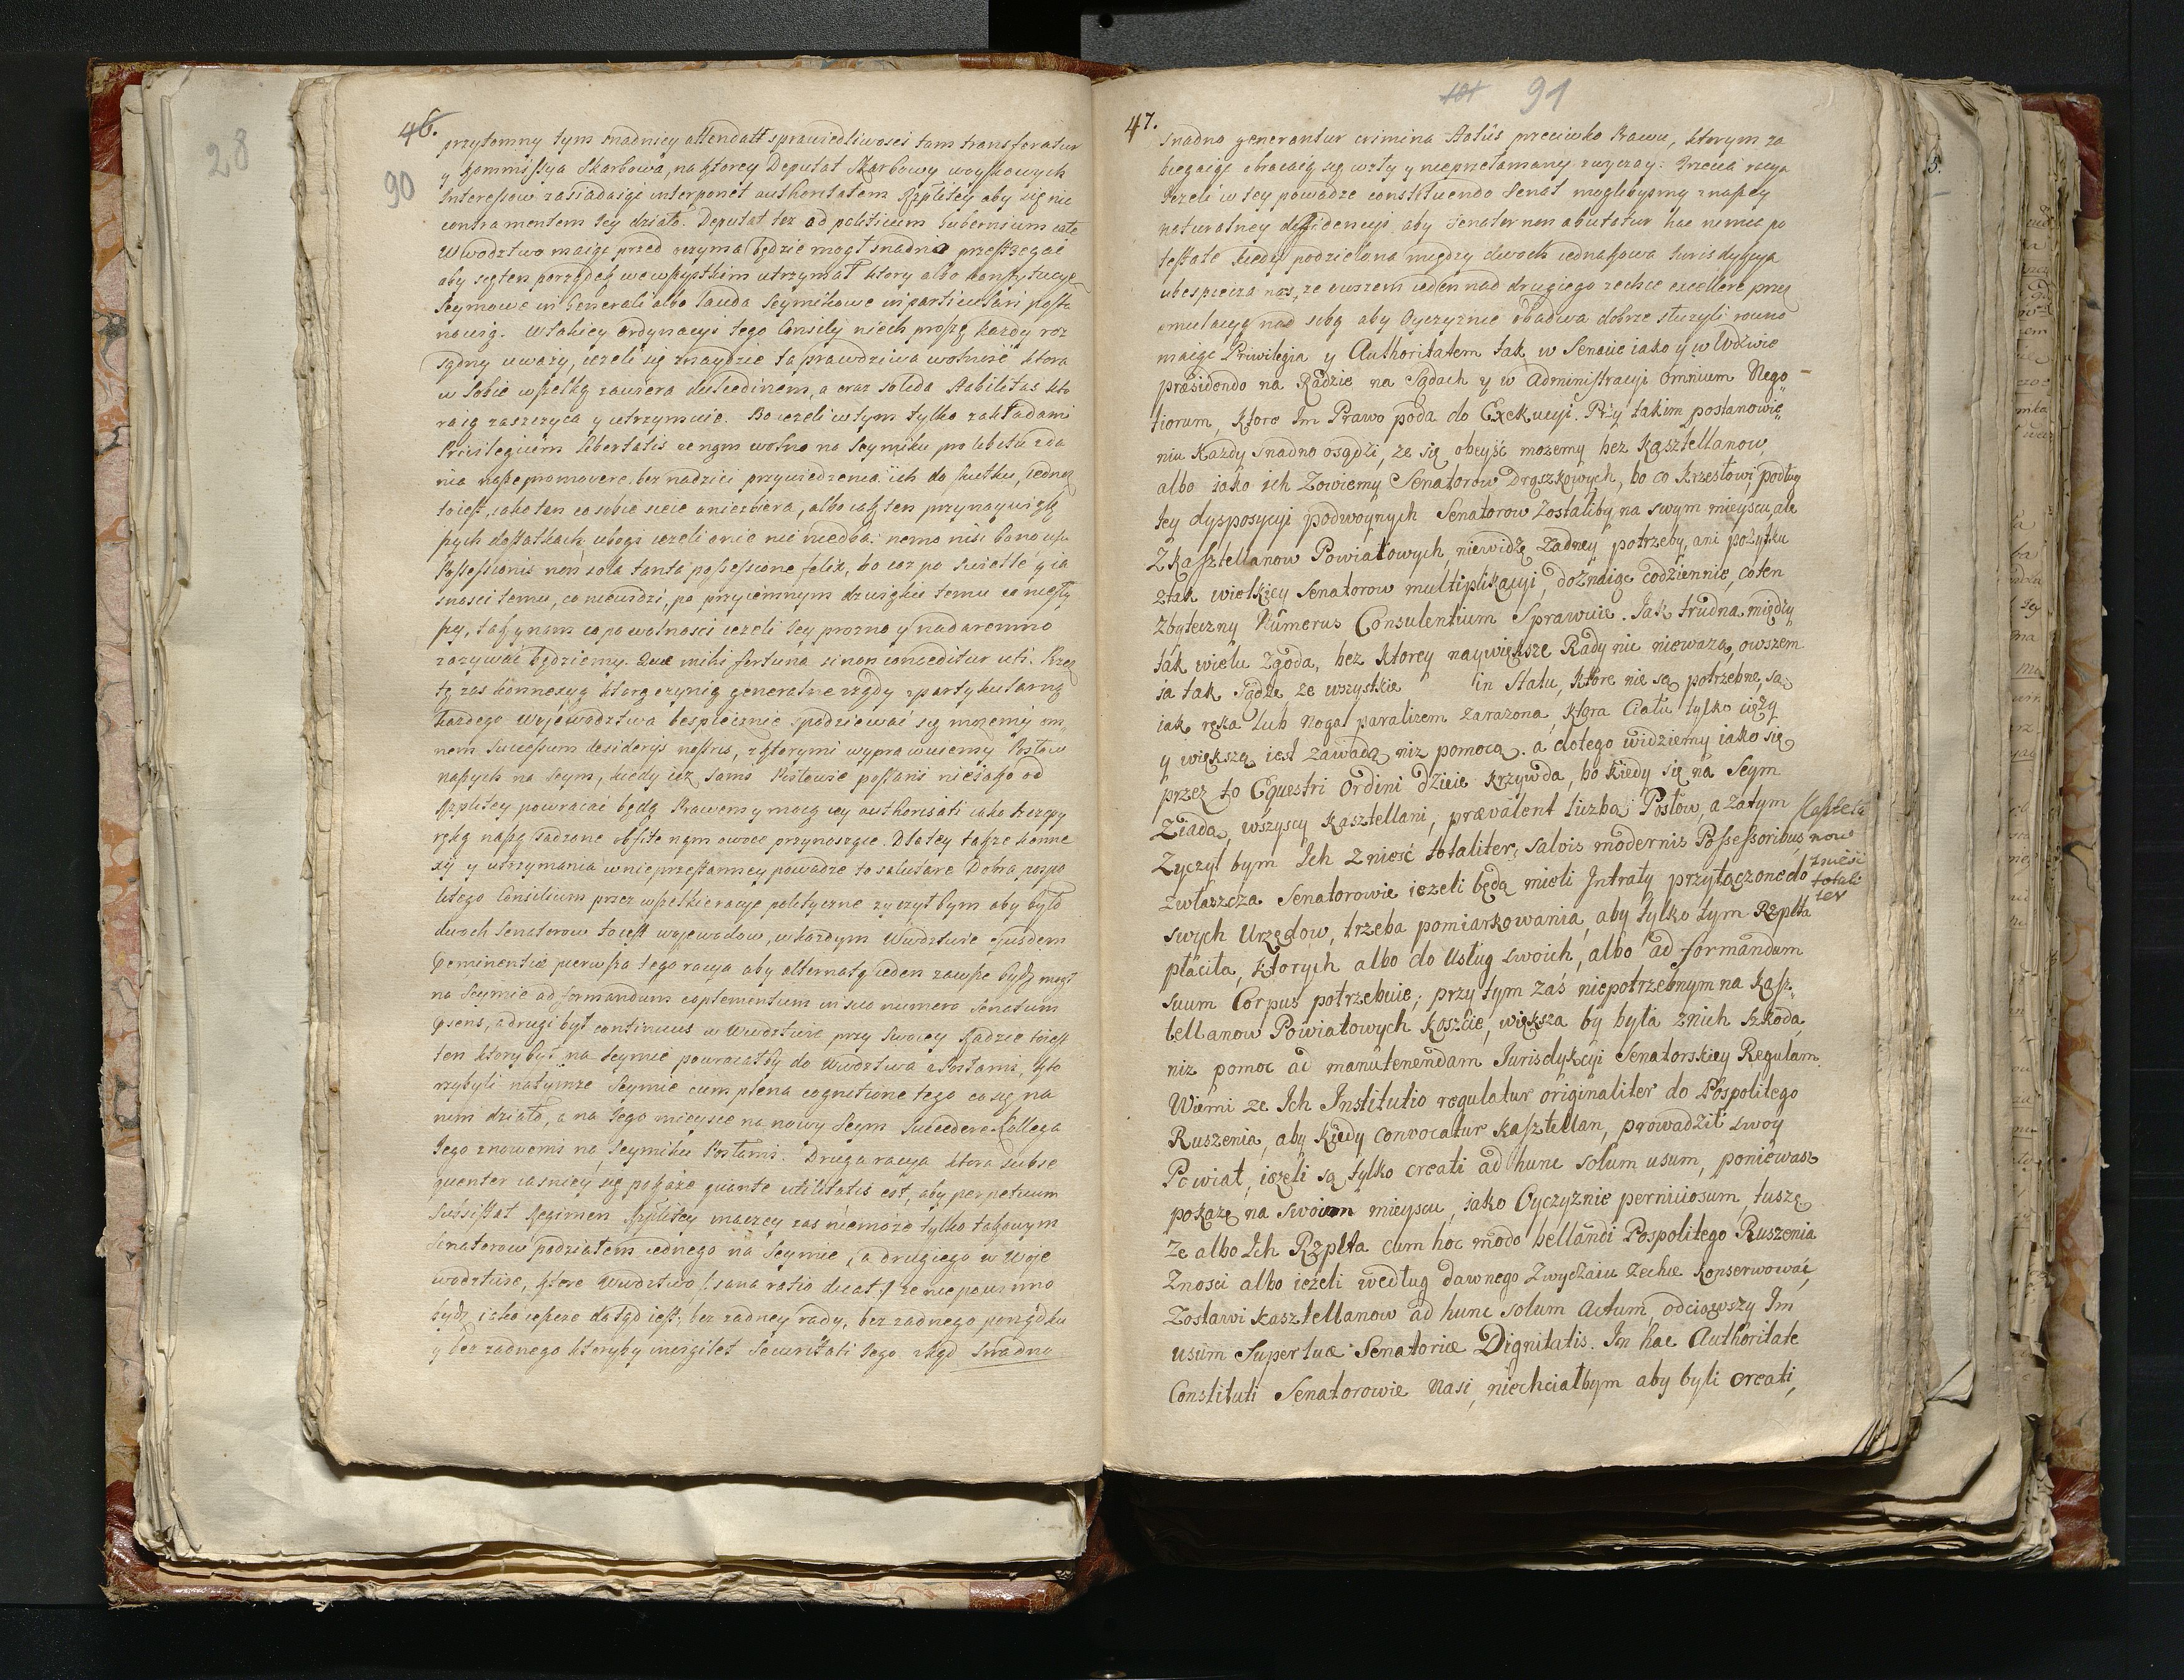 28
46.
90
przytomny tym snadniey attendat sprawiedliwosci tam transferatur
y Kommissya Skarbowa, na ktorey Deputat Skarbowy woyskowych
Interessow zasiadaiąc interponet authoritatem Rzpltey aby się nic
contra mentem Iey działo. Deputat tez ad politicum Gubernium całe
Wwodztwo maiąc przed oczyma będzie mogł snadno przestrzegac
aby się ten porządek we wszystkim utrzymał ktory albo Konstytucye
Seymowe in Generali albo Lauda Seymikowe in particulari posta
nowią. W takiey ordynacyi tego Consily niech proszę kazdy roz
sądny uwazy, iezeli się znaydzie ta prawdziwa wolność ktora
w sobie wszelką zawiera dulcedinem, a oraz solida stabilitas kto
ra ią zaszczyca y utrzymuie. Bo iezeli w tym tylko zakładamy
Privilegium libertatis ze nam wolno na Seymiku pro libitu zda
nia nasze promovere bez nadziei przywiedzenia ich do skutku, iedno
to iest, iako ten co sobie sieie a niezbiera, albo iak ten przy naywięk
szych dostatkach ubogi iezeli onie nie niedba: nemo nisi bono usu
Possessionis non sola tanta possessione felix, bo coz po swietle y ia
snosci temu, co niewidzi, po przyiemnym dzwięku temu co niesły
szy, tak y nam co po wolnosci iezeli Iey prozno y nadaremno
zazywac będziemy. Quo mihi fortuna si non conceditur uti. Przez
tę zas konnexyą ktorą czynią generalne rządy z partykularną
kazdego Woiewodztwa bespiecznie spodziewać się mozemy om
nem successum desiderijs nostris, z ktorymi wyprawuiemy Posłow
naszych na Seym, kiedy iuz sami Posłowie posłani nieiako od
Rzpltey powracac będą Prawem y mocą iey authorisati iako szczepy
ręką naszą sadzone obfite nam owoce przynoszące. Dla tey takze konne
xyi y utrzymania w nieprzestanney powadze to salutare Dobra pospo
litego Consilium przez wszelkie racye polityczne zyczył bym aby było
dwoch Senatorow to iest woiewodow, w kazdym Wwdztwie ejusdem
Eminentiæ pierwsza tego racya aby alternatą ieden zawsze bydz mogł
na Seymie ad formandum coplementium in suo numero Senatum
Præsens, a drugi był continuus w Wwodztwie przy swoiey Radzie to iest
ten ktory był na Seymie powrociłby do Wwoztwa z Posłami, kto
rzy byli na tymze Seymie cum plena cognitione tego co się na
nim działo, a na Iego mieysce na nowy Seym succederet Kollega
Iego z nowemi na Seymiku Posłami. Druga racya ktora subse
quenter iasniey się pokaze quantæ utilitatis est, aby perpetuum
subsistat Regimen Rzpltey inaczey zas niemoze tylko takowym
Senatorow podziałem iednego na Seymie, a drugiego w Woie
wodztwie, ktore Wwdztwo /:sana ratio ducat/ ze nie powinno
bydz iako teraz dotąd iest, bez zadney rady, bez zadnego porządku
y bez zadnego ktoryby invigilet Securitati Iego. Skąd snadno
101 91
47.
snadno generantur crimina status przeciwko Prawu, ktorym za
biegaiąc obracaią się w zły y nieprzełamany zwyczay: Trzecia racya
Iezeli w tey powadze constituendo Senat moglibysmy z naszey
naturalney diffidencyi, aby Senator non abutatur hac nimia po
testate kiedy podzielona między dwoch iednakowa Jurisdykcya
ubespiecza nas, ze owszem ieden nad drugiego zechce excellere przez
emulacyą nad sobą aby Oyczyznie obadwa dobrze słuzyli rowno
maiąc Privilegia y Authoritatem tak w Senacie iako y w Wdztwie
præsidendo na Radzie na Sądach y w Administracyi omnium Nego
tiorum, ktore Im Prawo poda do Exekucyi. Przy takim postanowie
niu Kazdy snadno osądzi, że się obeyść mozemy bez Kasztellanow,
albo iako ich Zowiemy Senatorow Drązkowych, bo co krzesłowi podług
tey dysposycyi podwoynych Senatorow Zostaliby na swym mieyscu, ale
Z Kasztellanow Powiatowych niewidzę Zadney potrzeby, ani pozytku
z tak wielkiey Senatorow multiplikacyi, doznaiąc codziennie, co ten
zbyteczny Numerus Consulentium Sprawuie. Jak trudna między
tak wielu Zgoda, bez ktorey naywiększe Rady nic niewazą, owszem
ia tak Sądzę ze wszystkie in Statu, ktore nie są potrzebne, są
iak ręka lub Noga paralizem zarazona, ktora Ciału tylko cięzy
y większą iest zawadą niz pomocą. a do tego widziemy iako się
przez to Equestri Ordini dzieie krzywda, bo kiedy się na Seym
Ziadą wszyscy Kasztellani, prævalent liczbą Posłow, a zatym
Zyczyl bym Ich znieść totaliter, salvis modernis Possessoribus,
zwłaszcza Senatorowie iezeli będą mieli Intraty przyłączone do
swych Urzędow, trzeba pomiarkowania, aby tylko tym Rzplta
płaciła, ktorych albo do Usług swoich, albo ad formandum
suum Corpus potrzebuie; przy tym zaś niepotrzebnym na Kasz
tellanow Powiatowych koszcie, większa by była z nich szkoda,
niz pomoc ad manutenendam Jurisdykcyi Senatorskiey Regulam.
Wiemi ze Ich Institutio regulatur originaliter do Pospolitego
Ruszenia, aby kiedy convocatur Kasztellan, prowadził swoy
Powiat, iezeli są tylko creati ad hunc solum usum, poniewasz
pokazę na swoim mieyscu, iako Oyczyznie perniciosum, tuszę
ze albo Ich Rzplta cum hoc modo bellandi Pospolitego Ruszenia
Znosci albo iezeli według dawnego Zwyczaiu zechce konserwować,
Zostawi Kasztellanow ad hunc solum Actum, odciąwszy Im
usum Superfluæ Senatoriæ Dignitatis. In hac Authoritate
Constituti Senatorowie Nasi, niechciałbym aby byli creati,
Kasztela
now
znieść
totali
ter
5.